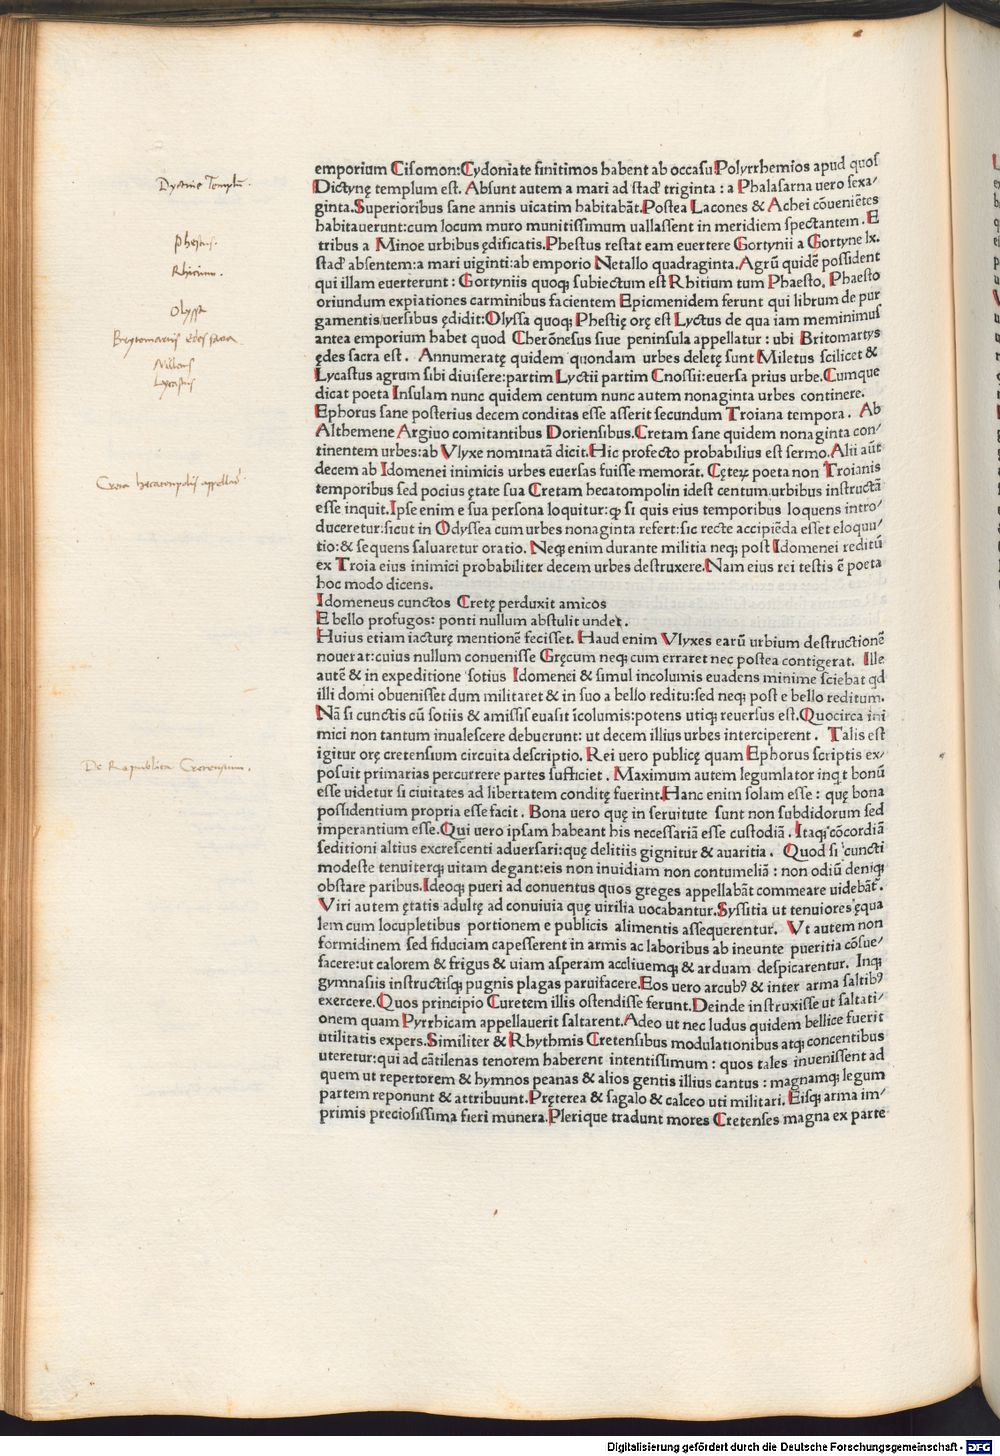 emporium Cisomon:Cydoniate finitimos habent ab occasu Polyrrhemios apud quos
Dictynę templum est. Absunt autem a mari ad stad' triginta : a Phalasarna uero sexa/
ginta.Superioribus sane annis uicatim habitabāt.Postea Lacones & Achei cōueniētes
habitauerunt:cum locum muro munitissimum uallassent in meridiem spectantem. E
tribus a Minoe urbibus ędificatis.Phestus restat eam euertere Gortynii a Gortyne lx.
stad' absentem:a mari uiginti:ab emporio Netallo quadraginta.Agrū quidē possident
qui illam euerterunt : Gortyniis quoqꝫ subiectum est Rhitium tum Phaesto. Phaesto
oriundum expiationes carminibus facientem Epicmenidem ferunt qui librum de pur
gamentis uersibus ędidit:Olyssa quoqꝫ Phestię orę est Lyctus de qua iam meminimus
antea emporium habet quod Cherōnesus siue peninsula appellatur : ubi Britomartys
ędes sacra est . Annumeratę quidem quondam urbes deletę sunt Miletus scilicet &
Lycastus agrum sibi diuisere:partim Lyctii partim Cnossii:euersa prius urbe.Cumque
dicat poeta Insulam nunc quidem centum nunc autem nonaginta urbes continere.
Ephorus sane posterius decem conditas esse asserit secundum Troiana tempora . Ab
Althemene Argiuo comitantibus Doriensibus.Cretam sane quidem nonaginta con/
tinentem urbes:ab Vlyxe nominatā dicit.Hic profecto probabilius est sermo.Alii aūt
decem ab Idomenei inimicis urbes euersas fuisse memorāt. Cęteꝝ poeta non Troianis
temporibus sed pocius ętate sua Cretam hecatompolin idest centum urbibus instructā
esse inquit.Ipse enim e sua persona loquitur:ꝙ si quis eius temporibus loquens intro/
duceretur:sicut in Odyssea cum urbes nonaginta refert:sic recte accipiēda esset eloquu/
tio:& sequens saluaretur oratio. Neqꝫ enim durante militia neqꝫ post Idomenei reditū
ex Troia eius inimici probabiliter decem urbes destruxere.Nam eius rei testis ē poeta
hoc modo dicens.
Idomeneus cunctos Cretę perduxit amicos
E bello profugos: ponti nullum abstulit undę.
Huius etiam iacturę mentionē fecisset. Haud enim Vlyxes earū urbium destructionē
nouerat:cuius nullum conuenisse Gręcum neqꝫ cum erraret nec postea contigerat. Ille
autē & in expeditione sotius Idomenei & simul incolumis euadens minime sciebat qd
illi domi obuenisset dum militaret & in suo a bello reditu:sed neqꝫ post e bello reditum.
Nā si cunctis cū sotiis & amissis euasit īcolumis:potens utiqꝫ reuersus est.Quocirca ini
mici non tantum inualescere debuerunt: ut decem illius urbes interciperent . Talis est
igitur orę cretensium circuita descriptio. Rei uero publicę quam Ephorus scriptis ex/
posuit primarias percurrere partes sufficiet . Maximum autem legumlator inqt bonū
esse uidetur si ciuitates ad libertatem conditę fuerint.Hanc enim solam esse : quę bona
possidentium propria esse facit . Bona uero quę in seruitute sunt non subdidorum sed
imperantium esse.Qui uero ipsam habeant his necessariā esse custodiā . Itaqꝫ cōcordiā
seditioni altius excrescenti aduersari:quę delitiis gignitur & auaritia . Quod si cuncti
modeste tenuiterqꝫ uitam degant:eis non inuidiam non contumeliā : non odiū deniqꝫ
obstare paribus.Ideoqꝫ pueri ad conuentus quos greges appellabāt commeare uidebāt̄.
Viri autem ętatis adultę ad conuiuia quę uirilia uocabantur.Syssitia ut tenuiores ęqua
lem cum locupletibus portionem e publicis alimentis assequerentur. Vt autem non
formidinem sed fiduciam capesserent in armis ac laboribus ab ineunte pueritia cōsue/
facere:ut calorem & frigus & uiam asperam accliuemqꝫ & arduam despicarentur. Inqꝫ
gymnasiis instructisqꝫ pugnis plagas paruifacere.Eos uero arcubꝰ & inter arma saltibꝰ
exercere.Quos principio Curetem illis ostendisse ferunt.Deinde instruxisse ut saltati/
onem quam Pyrrhicam appellauerit saltarent.Adeo ut nec ludus quidem bellice fuerit
utilitatis expers.Similiter & Rhythmis Cretensibus modulationibus atqꝫ concentibus
uteretur:qui ad cātilenas tenorem haberent intentissimum : quos tales inuenissent ad
quem ut repertorem & hymnos peanas & alios gentis illius cantus : magnamqꝫ legum
partem reponunt & attribuunt.Pręterea & sagalo & calceo uti militari. Eisqꝫ arma im/
primis preciosissima fieri munera.Plerique tradunt mores Cretenses magna ex parte
Dyctine Templū.
Phestus.
Rhitium.
Olyssa
Brytomartis edes sacra
Milletus
Lycastus
Creta hecatonpolis appellat'
De Republica Cretensium.
Digitalisierung gefördert durch die Deutsche Forschungsgemeinschaft - DFG